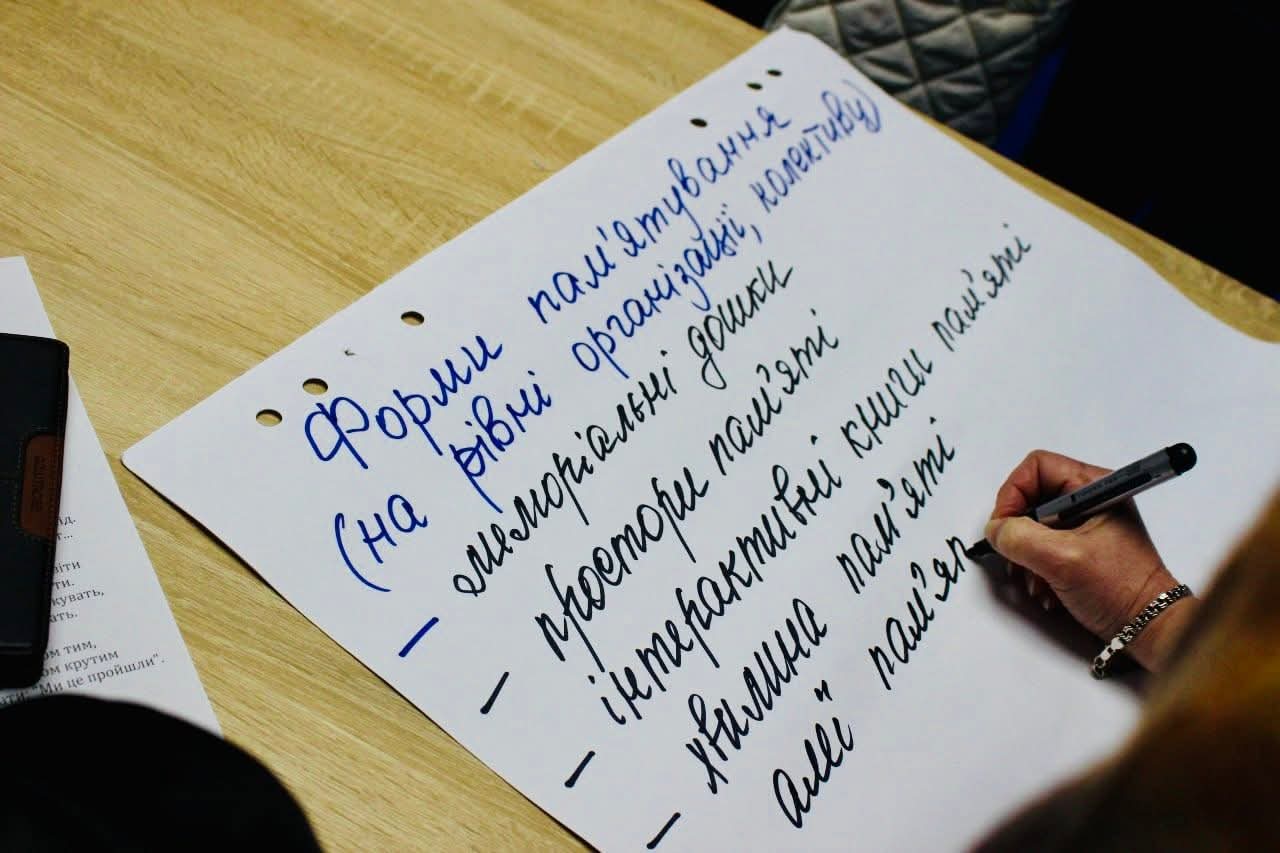 Форми пам'ятування
(на рівні організації, колективу)
- меморіальні дошки
- простори пам'яті
- інтерактивні книги пам'яті
- хвилина пам'яті
алеї пам'ят
ид.
віти
ти.
кувати,
ать.
ом тим,
ом крутим
ти. "Ми це пройшли".